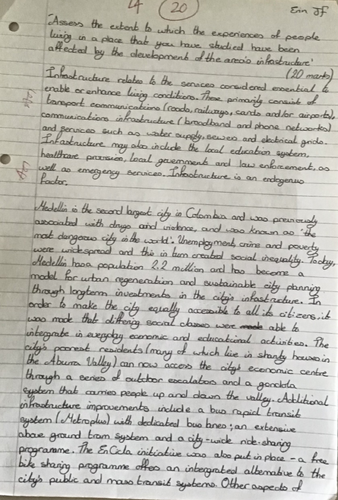 L4 20
'Assess the extent to which the experiences of people
living in a place that you have studied have been
affected by the development of the area's infrastructure'
(20 marks)
Infrastructure relates to the services considered essential to
enable or enhance living conditions. These primarily consist of
transport communications (roads, railways, canals and/or airports),
communications infrastructure (broadband and phone networks)
and services such as water supply, sewers and electrical grids.
Infrastructure may also include the local education system,
healthcare provision, local government and law enforcement, as
well as emergency services. Infrastructure is an endogenous
factor.
Medellin is the second largest city in Colombia and was previously
associated with drugs and violence, and was known as 'the
most dangerous city in the world'. Unemployment, crime and poverty
were widespread and this in turn created social inequality. Today,
Medellin has a population 2.2 million and has become a
model for urban regeneration and sustainable city planning
through longterm investments in the city's infrastructure. In
order to make the city equally accessible to all its citizens, it
was made that differing social classes were able to
integrate in everyday economic and educational activities. The
city's poorest residents (many of which live in shanty houses in
the Aburra Valley) can now access the city's economic centre
through a series of outdoor escalators and a gondola
system that carries people up and down the valley. Additional
infrastructure improvements include a bus rapid transit
system (Metroplus) with dedicated bus lanes; an extensive
above ground tram system and a city-wide ride-sharing
programme. The EnCicla initiative was also put in place - a free
bike sharing programme offers an intergrated alternative to the
city's public and mass transit systems. Other aspects of